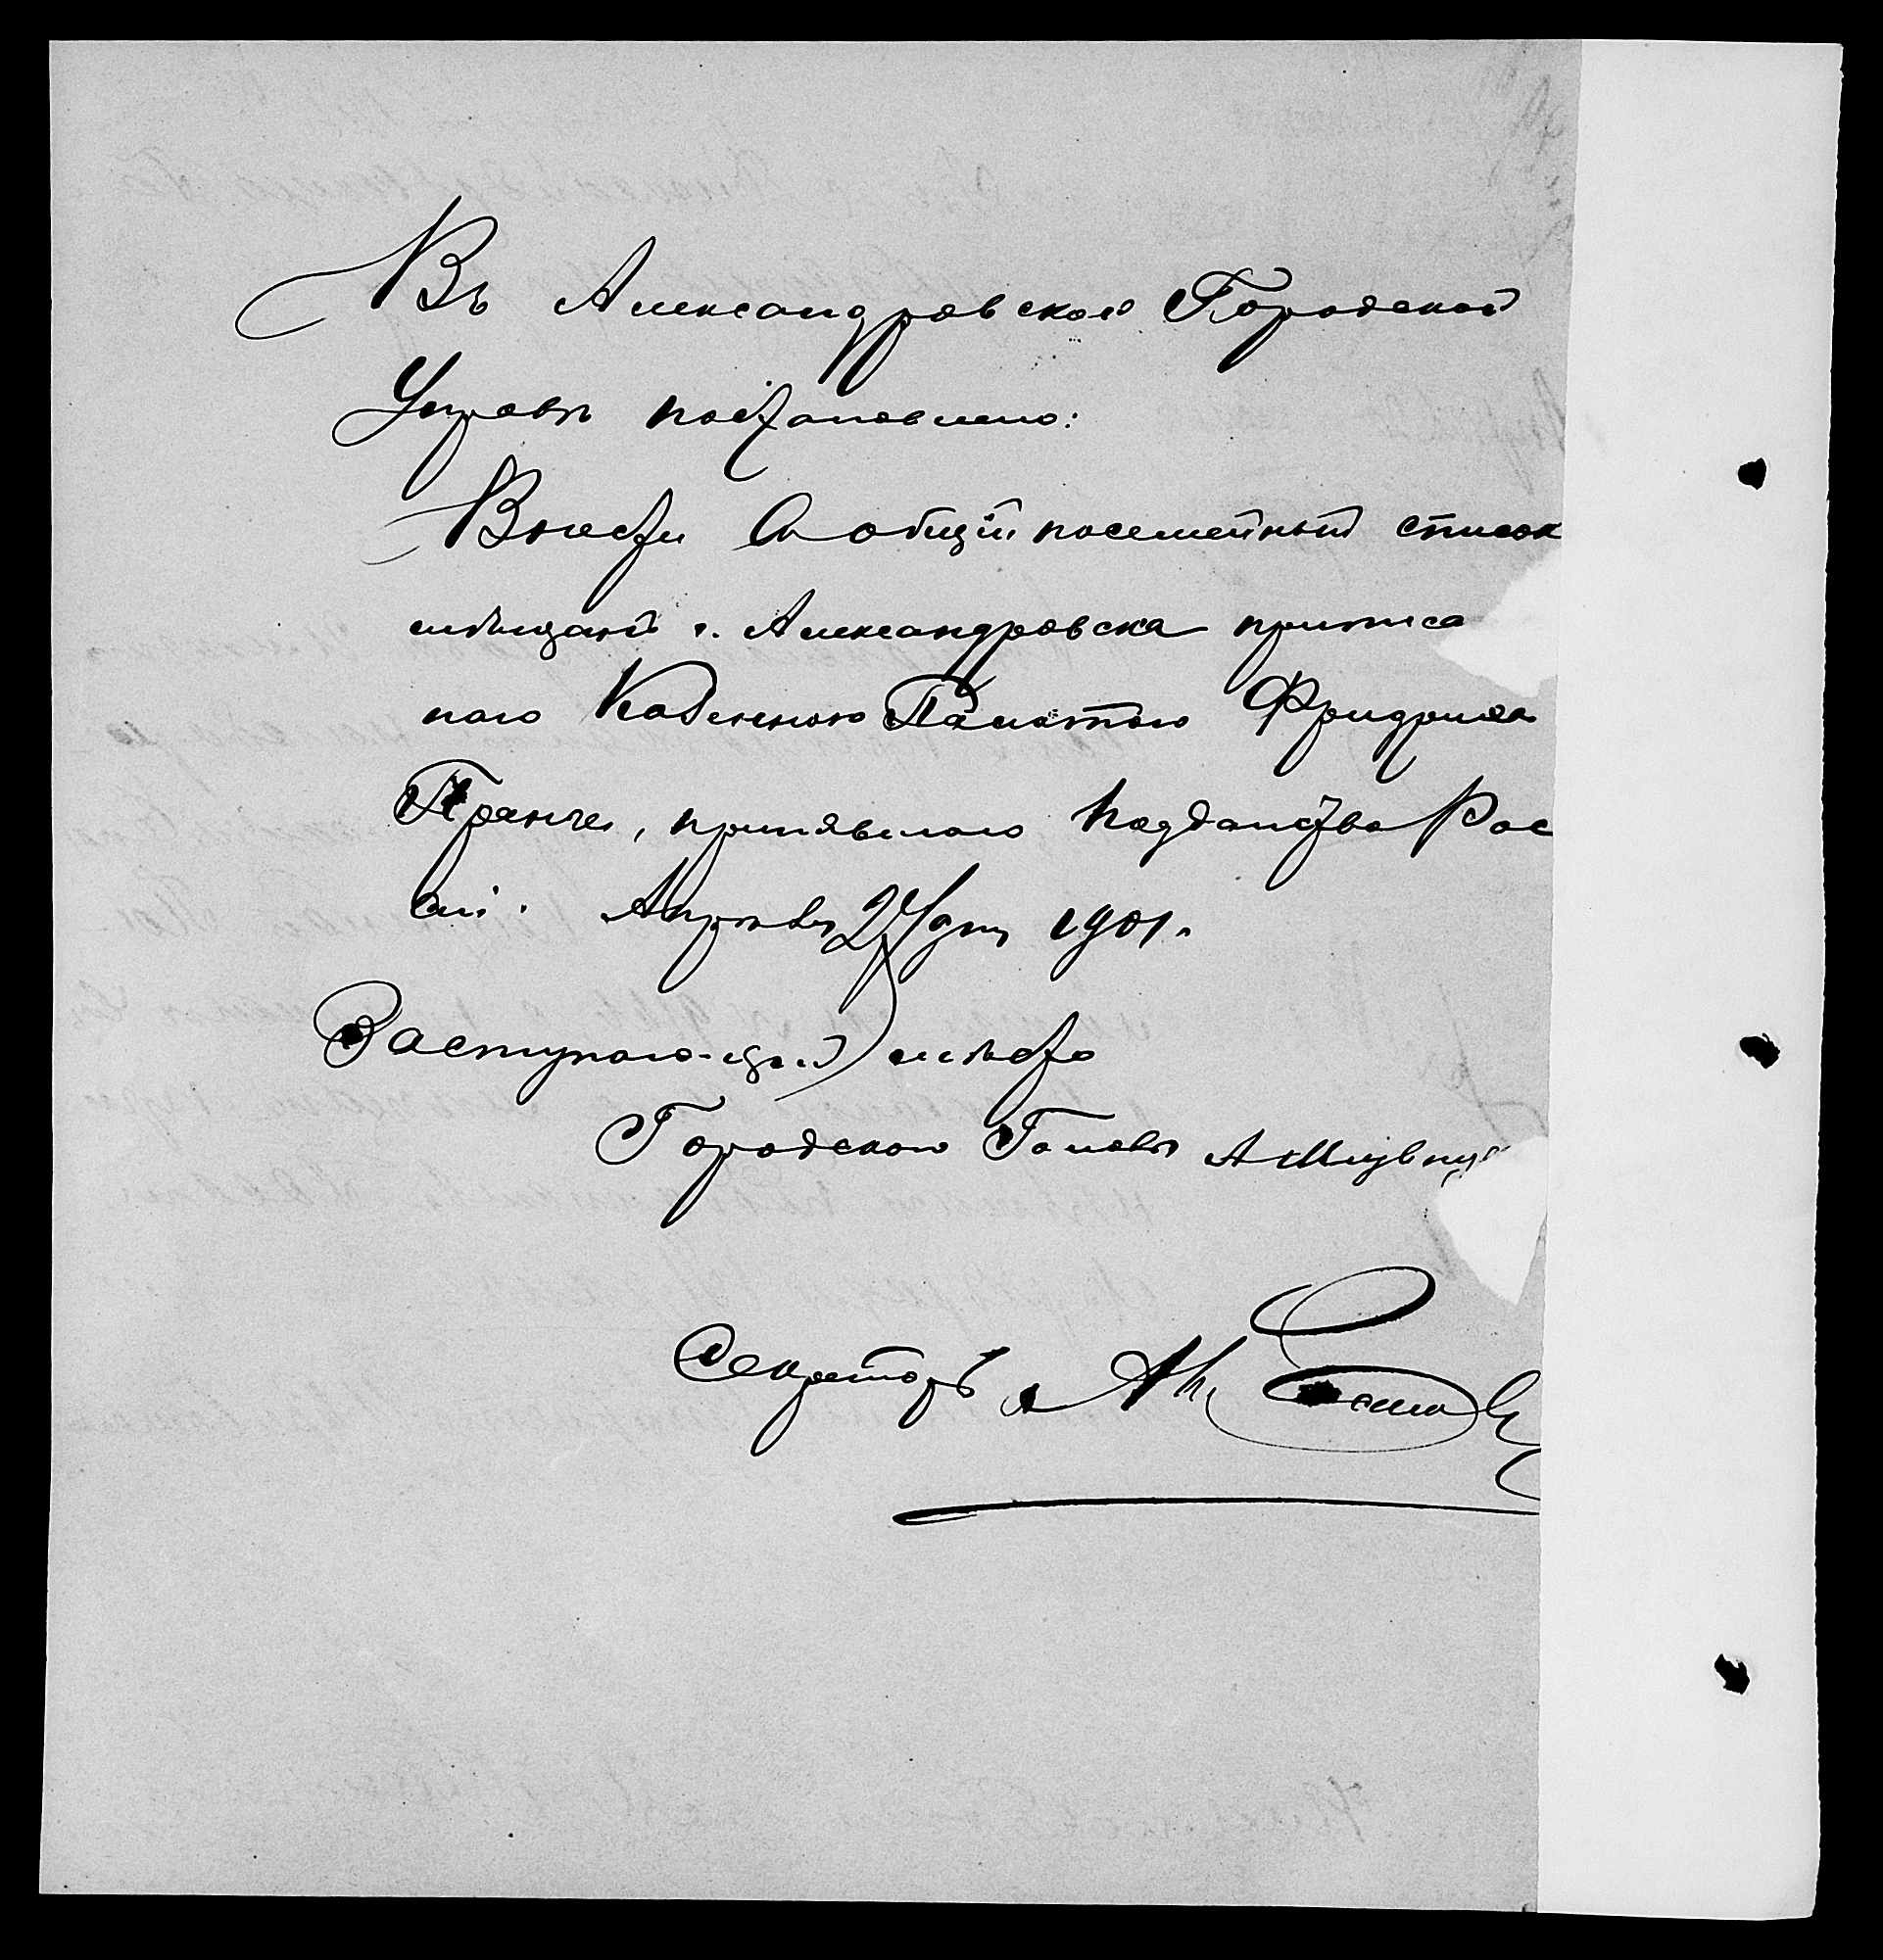 Въ Александровской Городской
Управѣ постановлено:
Внести въ общій посемейный список
мѣщанъ г. Александровска приписа
наго Казенною Палатою Фридриха
Пранче, принявшаго подданство Рос
сіи. Апрѣля 24 дня 1901 г.
Заступающій мѣсто
Городского Головы
Секретарь